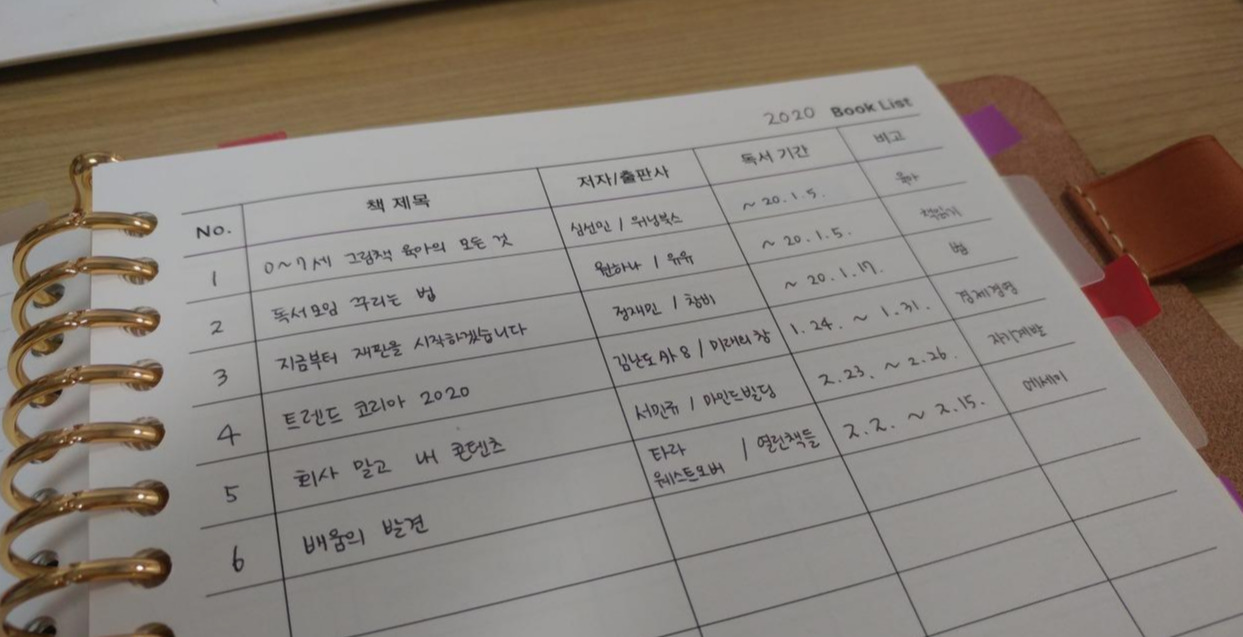 2020 Book List
No. 책 제목 저자/출판사 독서 기간 비고
1 0~7세 그림책 육아의 모든 것 심선민 / 위닝북스 ~ 20.1.5. 육아
2 독서모임 꾸리는 법 원하나 / 유유 ~ 20.1.5. 책읽기
3 지금부터 재판을 시작하겠습니다 정재민 / 창비 ~ 20.1.17. 법
4 트렌드 코리아 2020 김난도 外 8 / 미래의 창 1.24. ~ 1.31. 경제경영
5 회사 말고 내 콘텐츠 서민규 / 마인드빌딩 2.23. ~ 2.26. 자기계발
6 배움의 발견 타라 웨스트오버 / 열린책들 2.2. ~ 2.15. 에세이